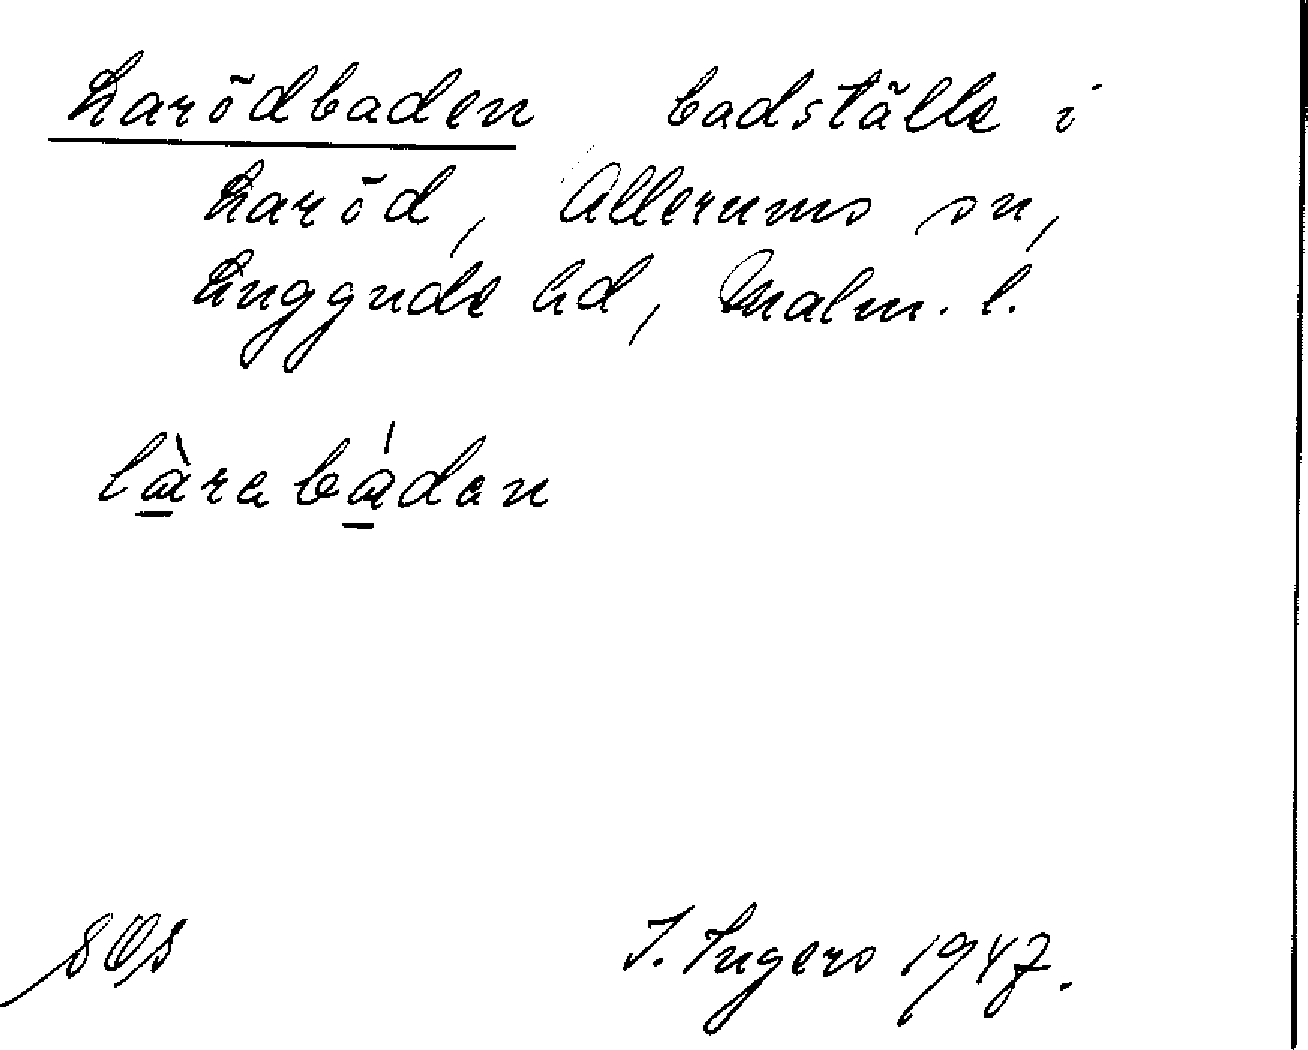 Larödbaden badställe i
Laröd, Allerums sn,
Luggude hd, Malm. l.
làrabádan
I. Ingers 1947.